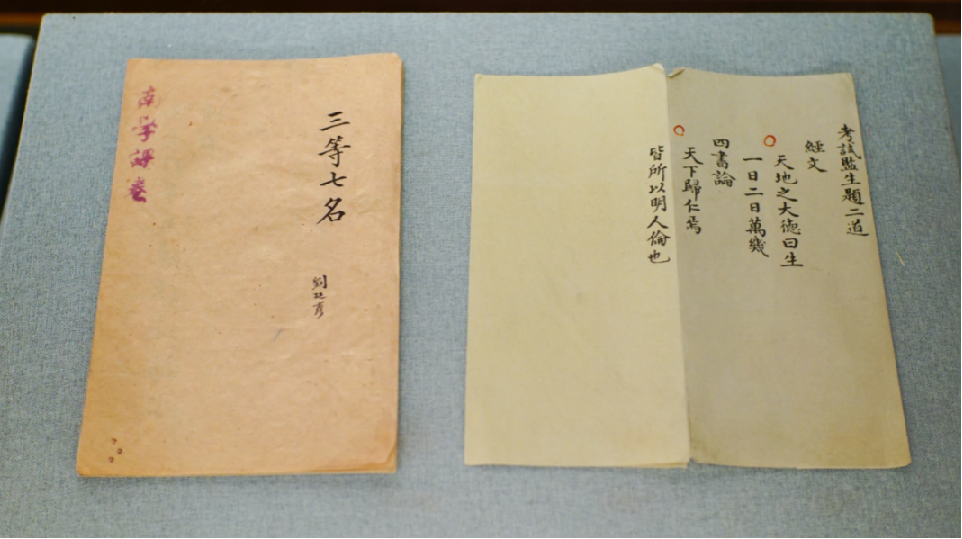 南學課卷
三等七名
考試監生題二道
經文
天地之大德曰生
一日二日萬幾
四書論
天下歸仁焉
皆所以明人倫也